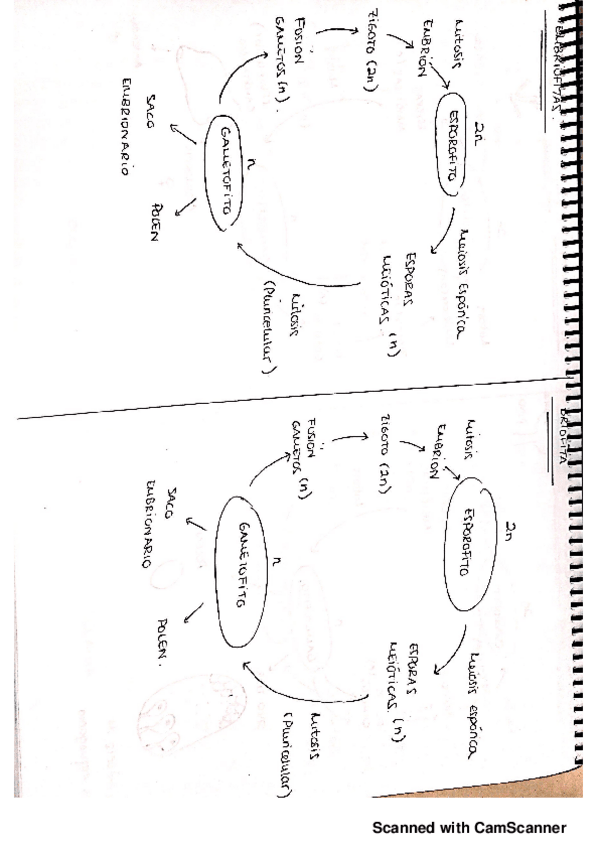 EMBRIOFITAS.
2n
ESPOROFITO
Mitosis
EMBRIÓN
ZIGOTO (2n)
FUSIÓN
GAMETOS (n).
Meiosis espórica
ESPORAS
MEIÓTICAS (n)
Mitosis
(Pluricelular)
n
GAMETOFITO
SACO
EMBRIONARIO
POLEN
BRIOFITA
2n
ESPOROFITO
Mitosis
EMBRIÓN
ZIGOTO (2n)
FUSIÓN
GAMETOS (n)
Meiosis espórica
ESPORAS
MEIÓTICAS (n)
Mitosis
(Pluricelular)
n
GAMETOFITO
SACO
EMBRIONARIO
POLEN.
Scanned with CamScanner